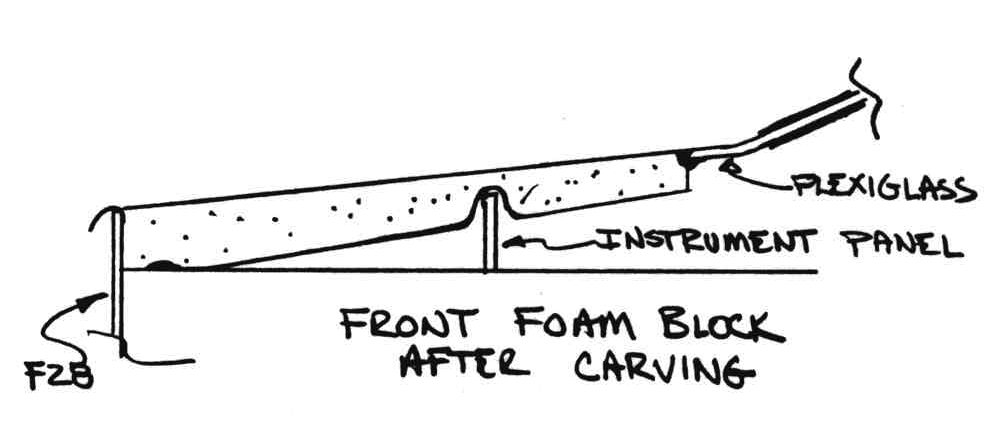 PLEXIGLASS
INSTRUMENT PANEL
FRONT FOAM BLOCK
AFTER CARVING
F28